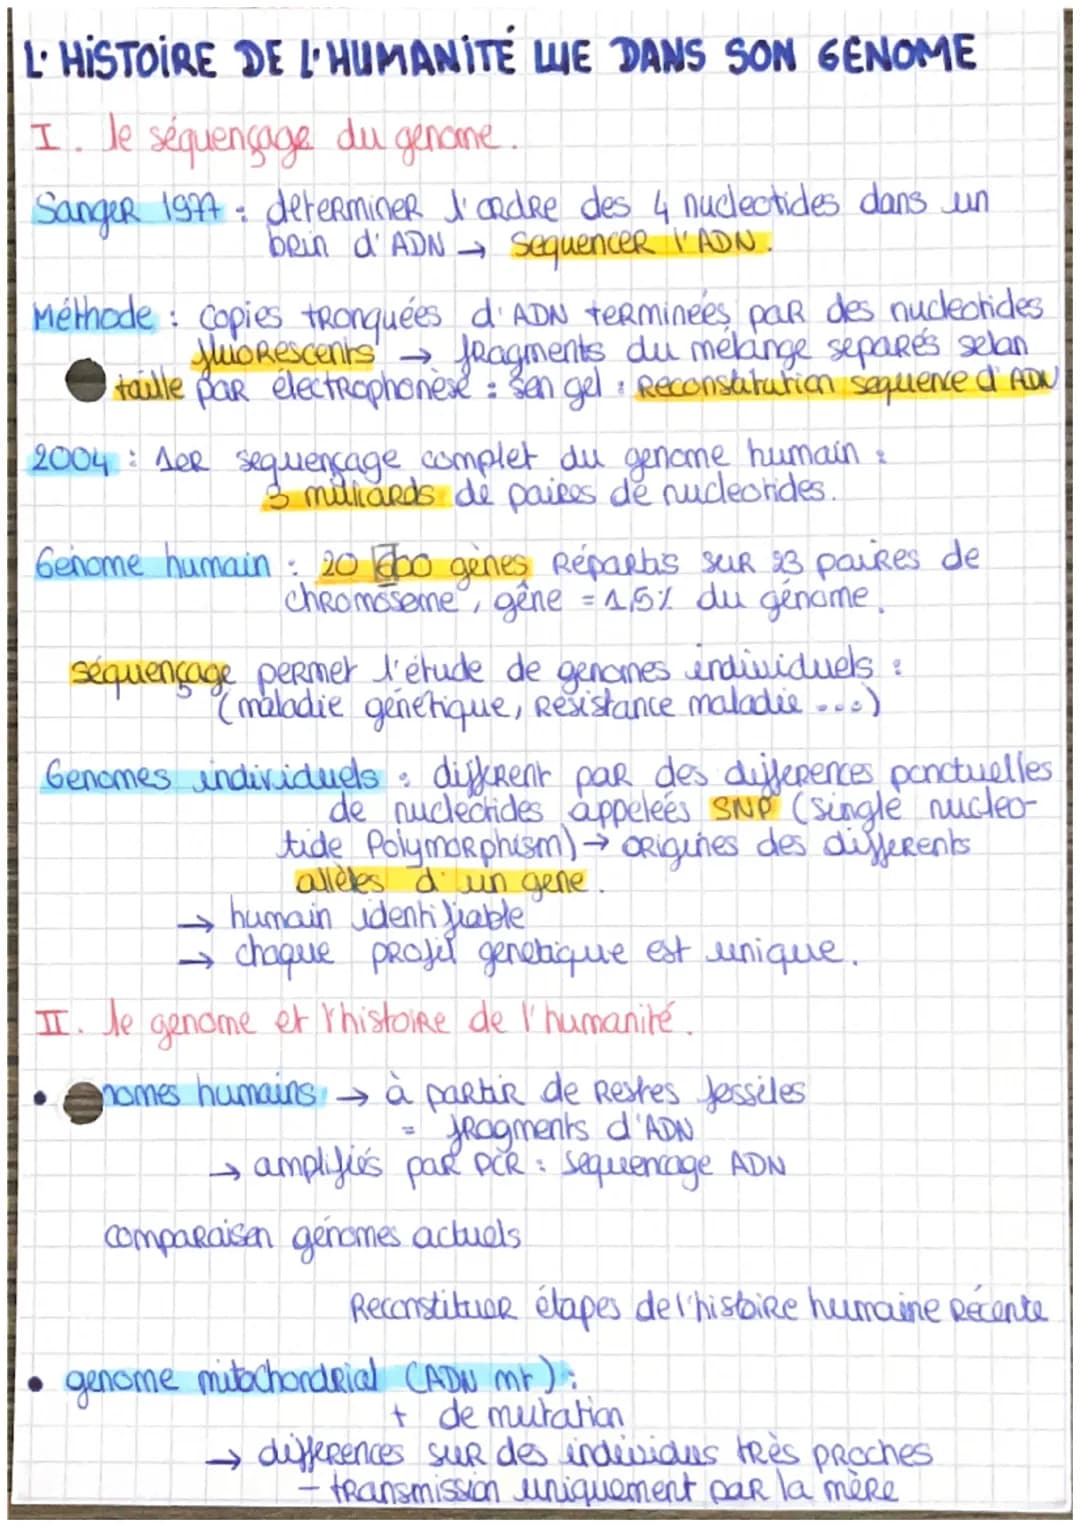 L'HISTOIRE DE L'HUMANITÉ LUE DANS SON GENOME
I. le séquençage du genome.
Sanger 1977 : determiner l'ordre des 4 nucleotides dans un
brin d'ADN → sequencer l'ADN.
Méthode : copies tronquées d'ADN terminées par des nucleotides
fluorescents → fragments du mélange separés selon
taille par électrophorèse : sen gel : Reconstitution sequence d'ADN
2004 : 1er sequençage complet du genome humain :
3 milliards de paires de nucleotides.
Genome humain : 20 000 gènes Répartis sur 23 paires de
chromosome, gêne = 1,5% du génome.
séquençage permet l'étude de genomes individuels :
(maladie génétique, Résistance maladie ...)
Genomes individuels : different par des differences ponctuelles
de nucleotides appeleés SNP (single nucleo-
tide Polymorphism) → origines des differents
allèles d'un gene.
→ humain identifiable
→ chaque profil genetique est unique.
II. le genome et l'histoire de l'humanité.
• nomes humains → à partir de Restes fossiles
= fragments d'ADN
→ amplifiés par PCR : sequencage ADN
comparaison génomes actuels
Reconstituer étapes de l'histoire humaine Récente
• genome mitochondrial (ADN mt) :
+ de mutation
→ differences sur des individus très proches
- transmission uniquement par la mère